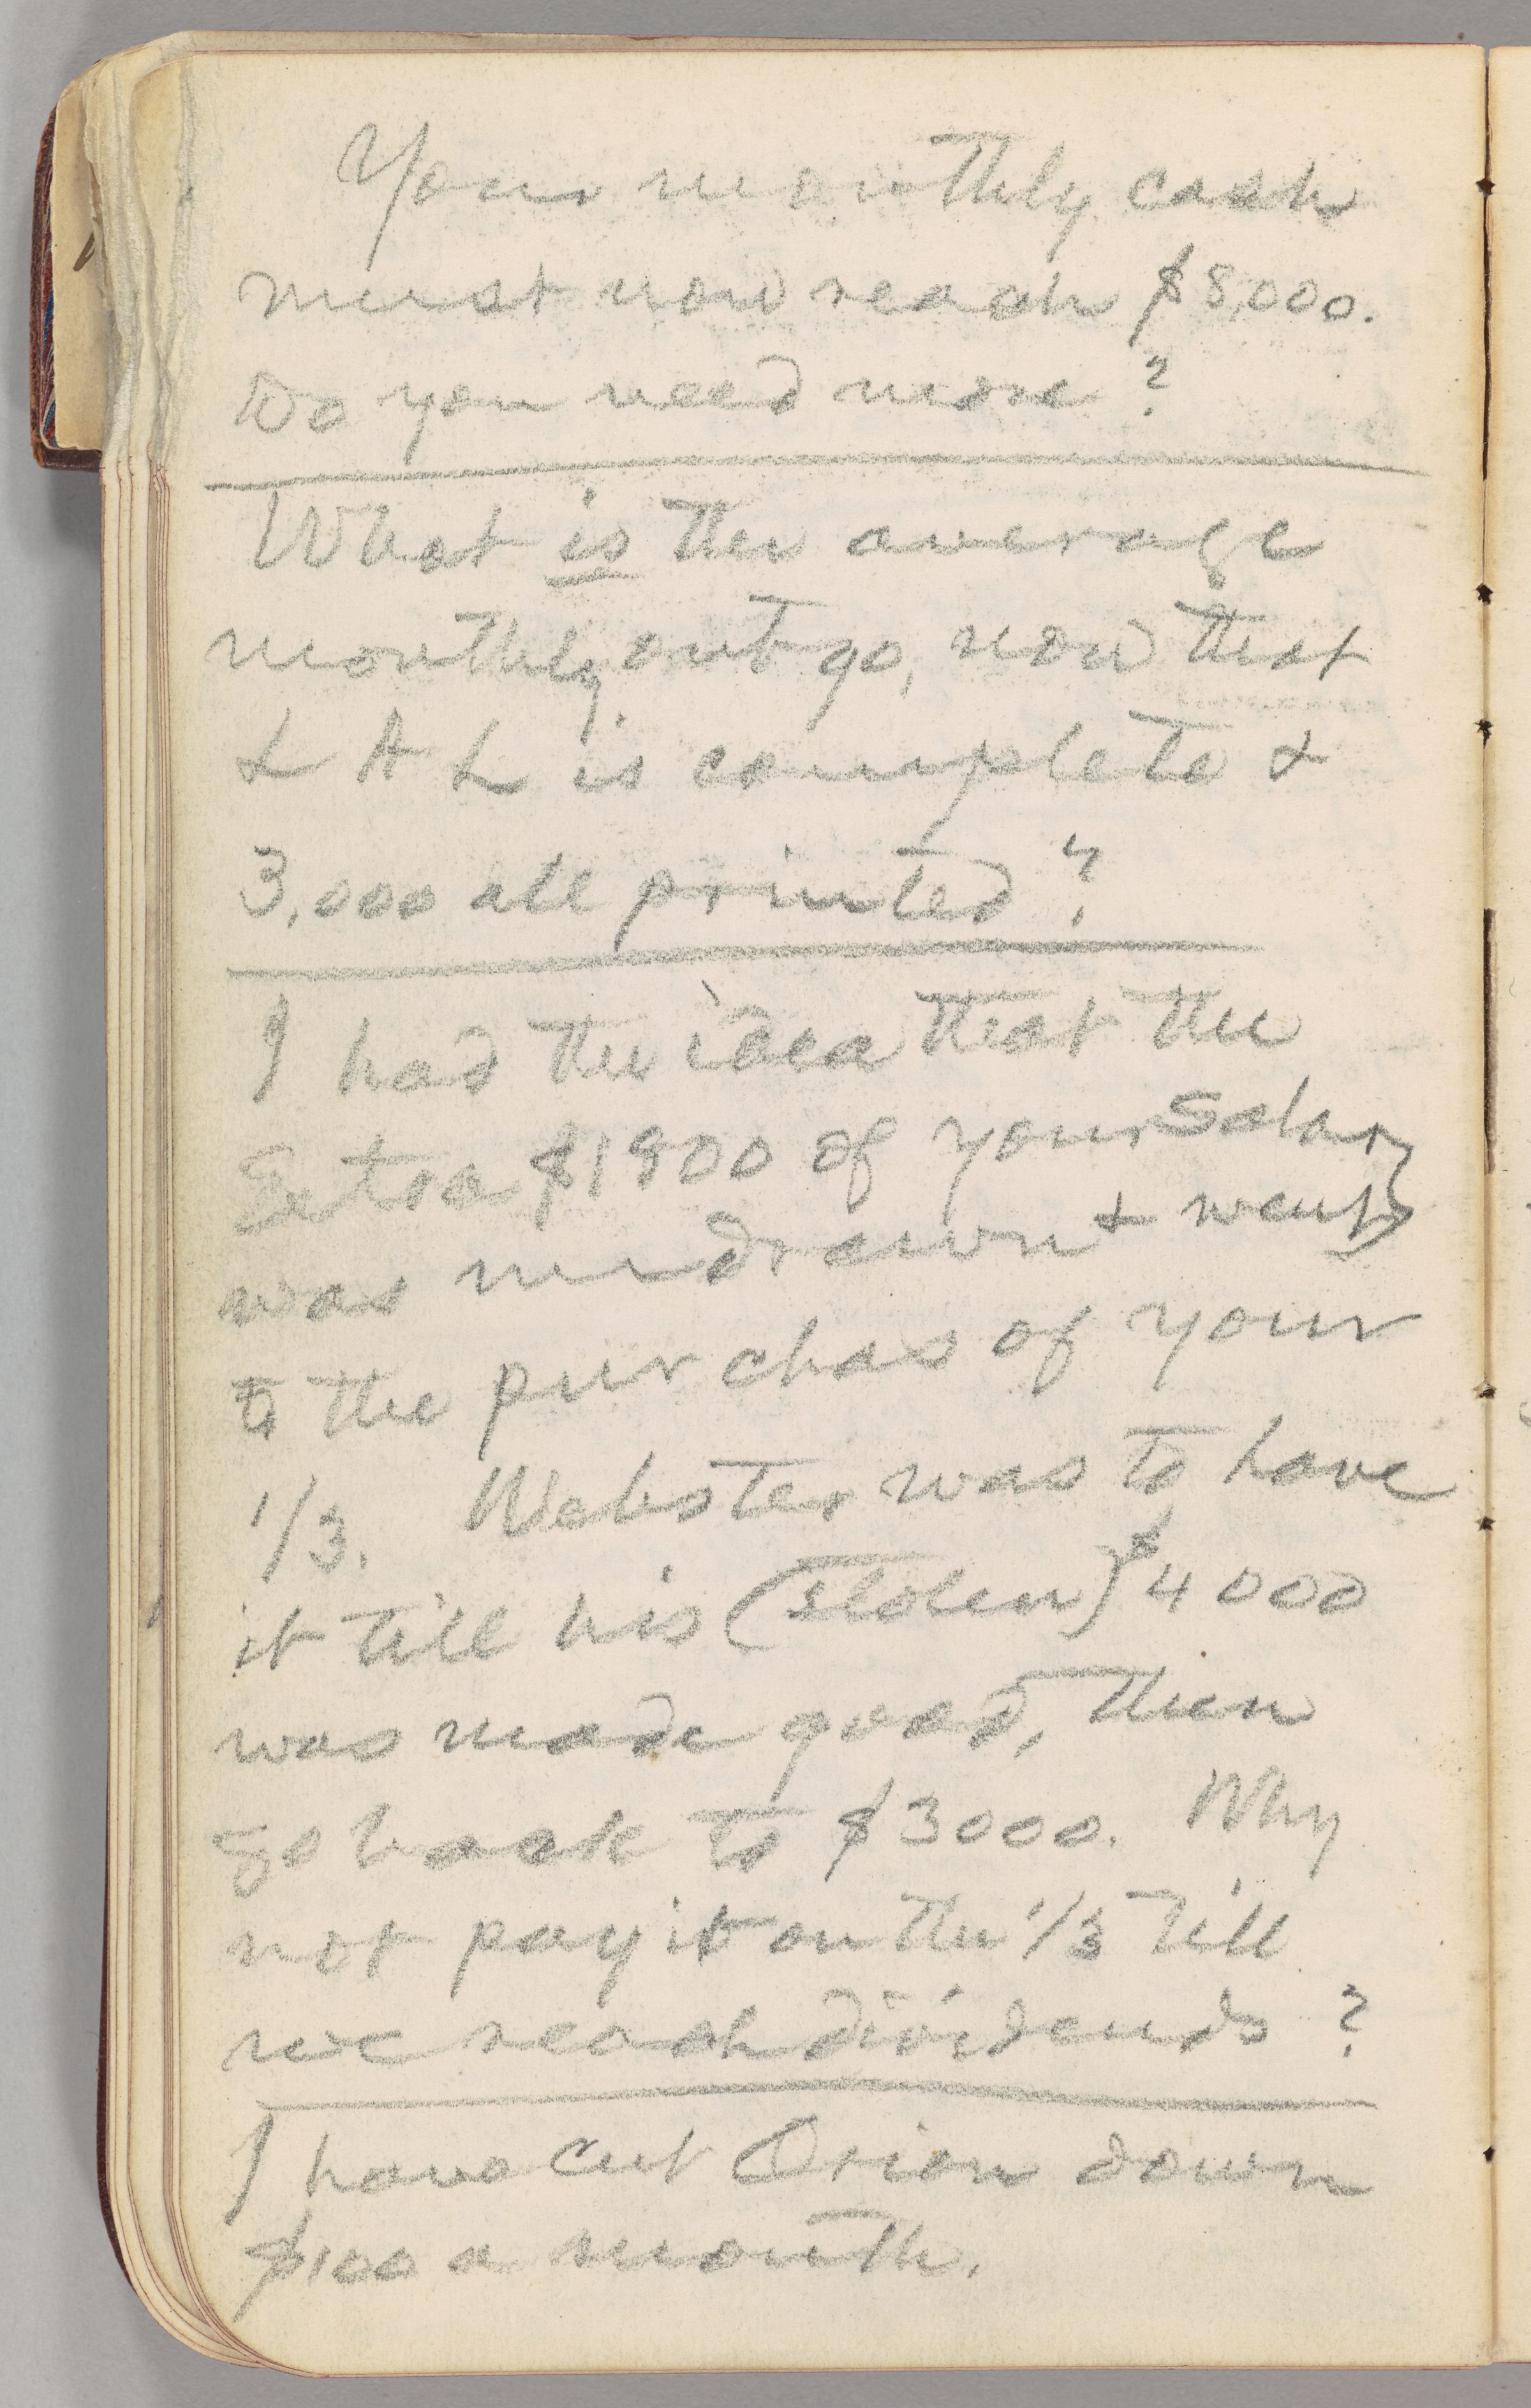 Your monthly cash
must now reach $8,000.
Do you need more?
What is the average
monthly out go, now that
L A L is complete &
3,000 all printed?
I had the idea that the
Extra $1800 of your salary
was undrawn & went
to the purchas of your
1/3. Webster was to have
it till his (stolen) $4000
was made good, then
go back to $3000. Why
not pay it on the 1/3 till
we reach dividends?
I have cut Orion down
$100 a month.